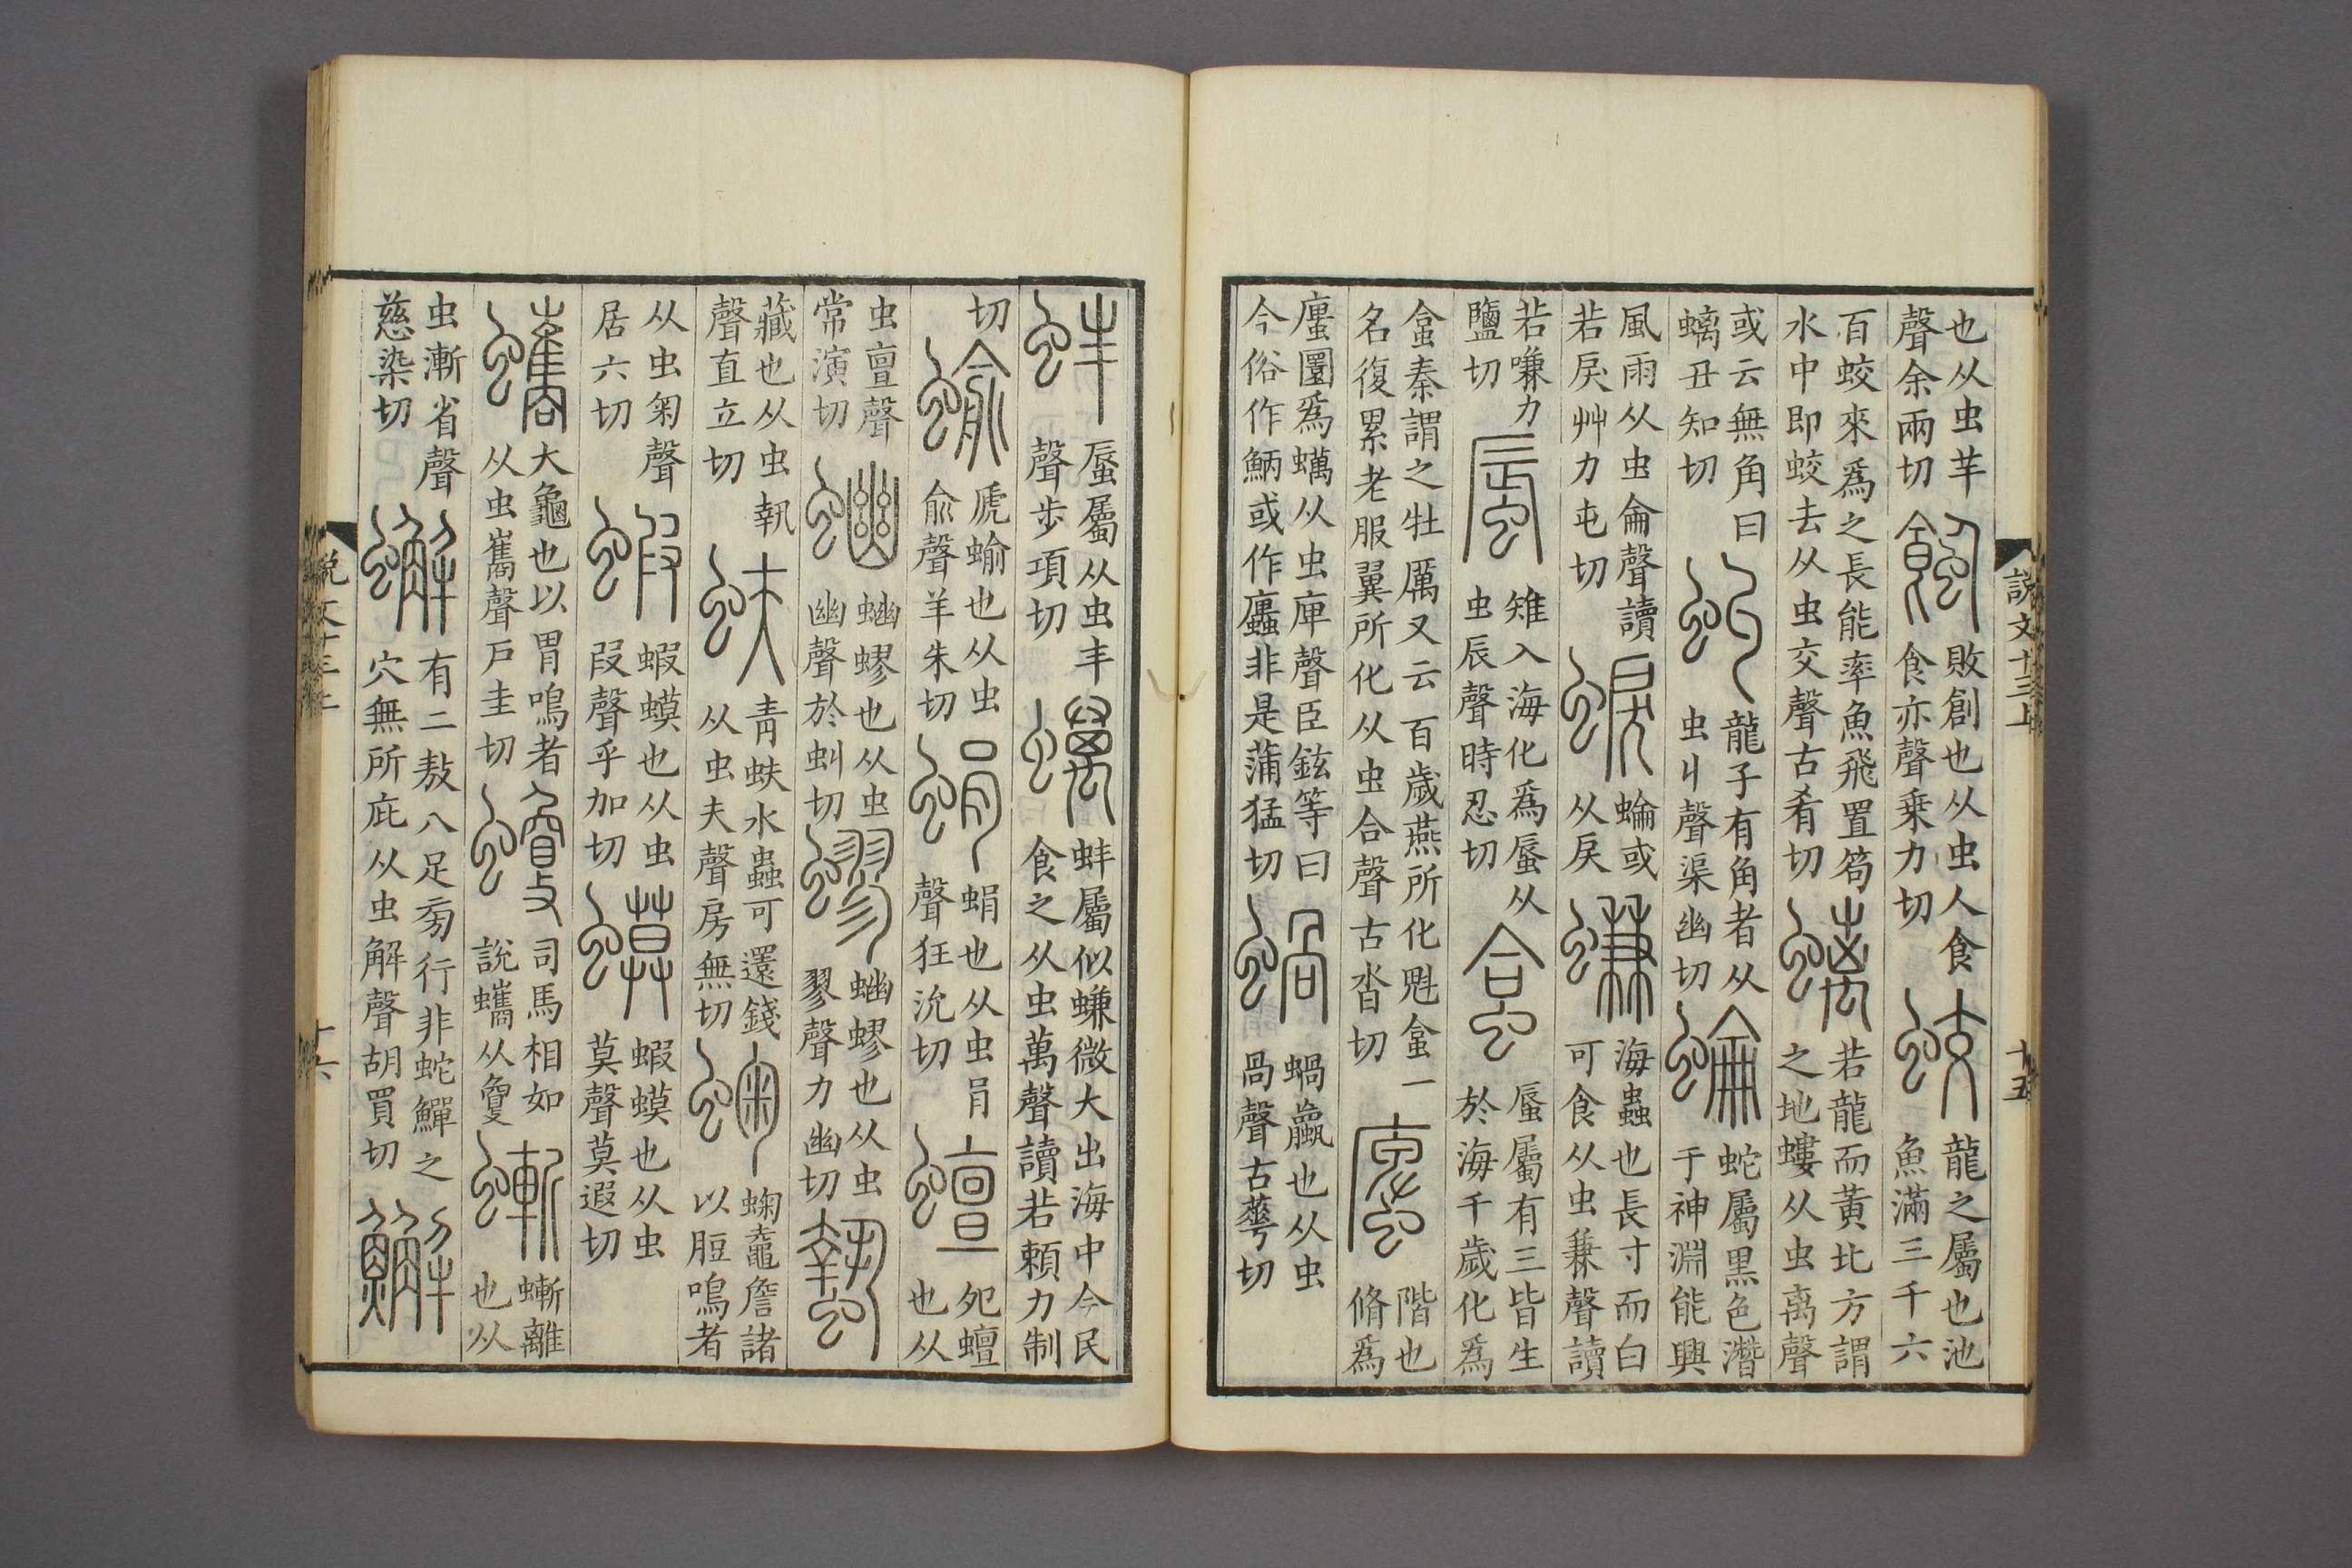 說文十三上 十五
也从虫芉聲余兩切 蝕 敗創也从虫人食食亦聲乗力切 蛟 龍之屬也池魚滿三千六
百蛟來爲之長能率魚飛置笱水中即蛟去从虫交聲古肴切 螭 若龍而黃北方謂之地螻从虫离聲
或云無角曰螭丑知切 虯 龍子有角者从虫丩聲渠幽切 蜦 蛇屬黑色潛于神淵能興
風雨从虫侖聲讀若戾艸力屯切 蜧 蜦或从戾 螊 海蟲也長寸而白可食从虫兼聲讀
若嗛力鹽切 蜃 雉入海化爲蜃从虫辰聲時忍切 盒 蜃屬有三皆生於海千歲化爲
盒秦謂之牡厲又云百歲燕所化魁盒一名復累老服翼所化从虫合聲古沓切 蠯 階也脩爲
蠯圜爲蠇从虫庳聲臣鉉等曰今俗作魶或作蠯非是蒲猛切 蝸 蝸蠃也从虫咼聲古華切
蚌 蜃屬从虫丰聲步項切 蠇 蚌屬似螊微大出海中今民食之从虫萬聲讀若賴力制
切 蝓 虒蝓也从虫俞聲羊朱切 蜎 蜎也从虫肙聲狂沇切 蟺 夗蟺也从
虫亶聲常演切 蟉 蟉蟉也从虫幽聲於虯切 蟉 蟉也从虫翏聲力幽切 蟄
藏也从虫執聲直立切 蚨 青蚨水蟲可還錢从虫夫聲房無切 䗇 蜠鼀詹諸以脰鳴者
从虫匊聲居六切 蝦 蝦蟆也从虫叚聲乎加切 蟆 蝦蟆也从虫莫聲莫遐切
蠵 大龜也以胃鳴者从虫巂聲戶圭切 司馬相如說蠵从敻 螹 螹離也从
虫漸省聲慈染切 蠏 有二敖八足旁行非蛇鱓之穴無所庇从虫解聲胡買切 鱰
說文十三上 十六